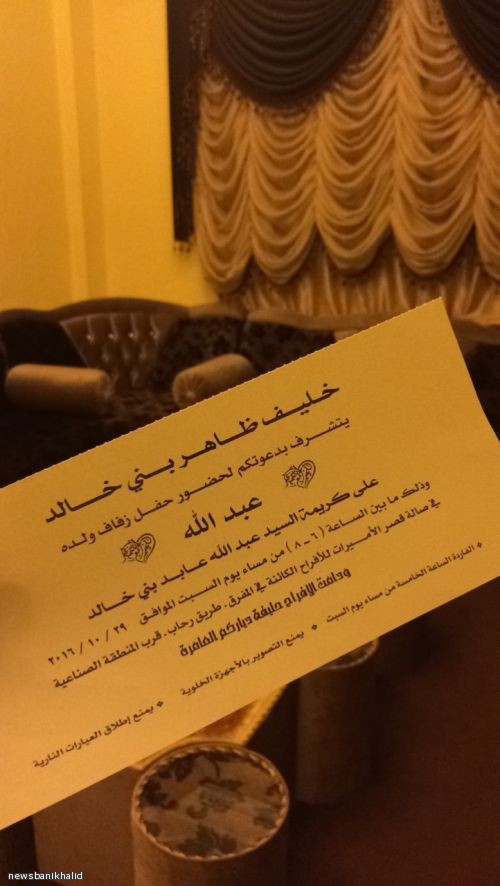 خليف ظاهر بني خالد
يتشرف بدعوتكم لحضور حفل زفاف ولده
عبد الله
على كريمة السيد عبد الله عابد بني خالد
وذلك ما بين الساعة (٦ - ٨) من مساء يوم السبت الموافق ٢٩ / ١٠ / ٢٠١٦
في صالة قصر الأميرات للأفراح الكائنة في المفرق . طريق رحاب . قرب المنطقة الصناعية
ودامت الافراح حليفة دياركم العامرة
* الفاردة الساعة الخامسة من مساء يوم السبت * يمنع التصوير بالأجهزة الخلوية * يمنع إطلاق العيارات النارية
newsbanikhalid